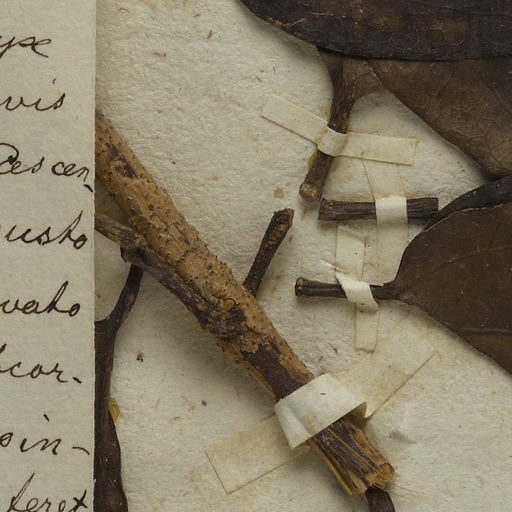 ype
vis
Cescen-
usto
vato
bcor-
oin-
feret